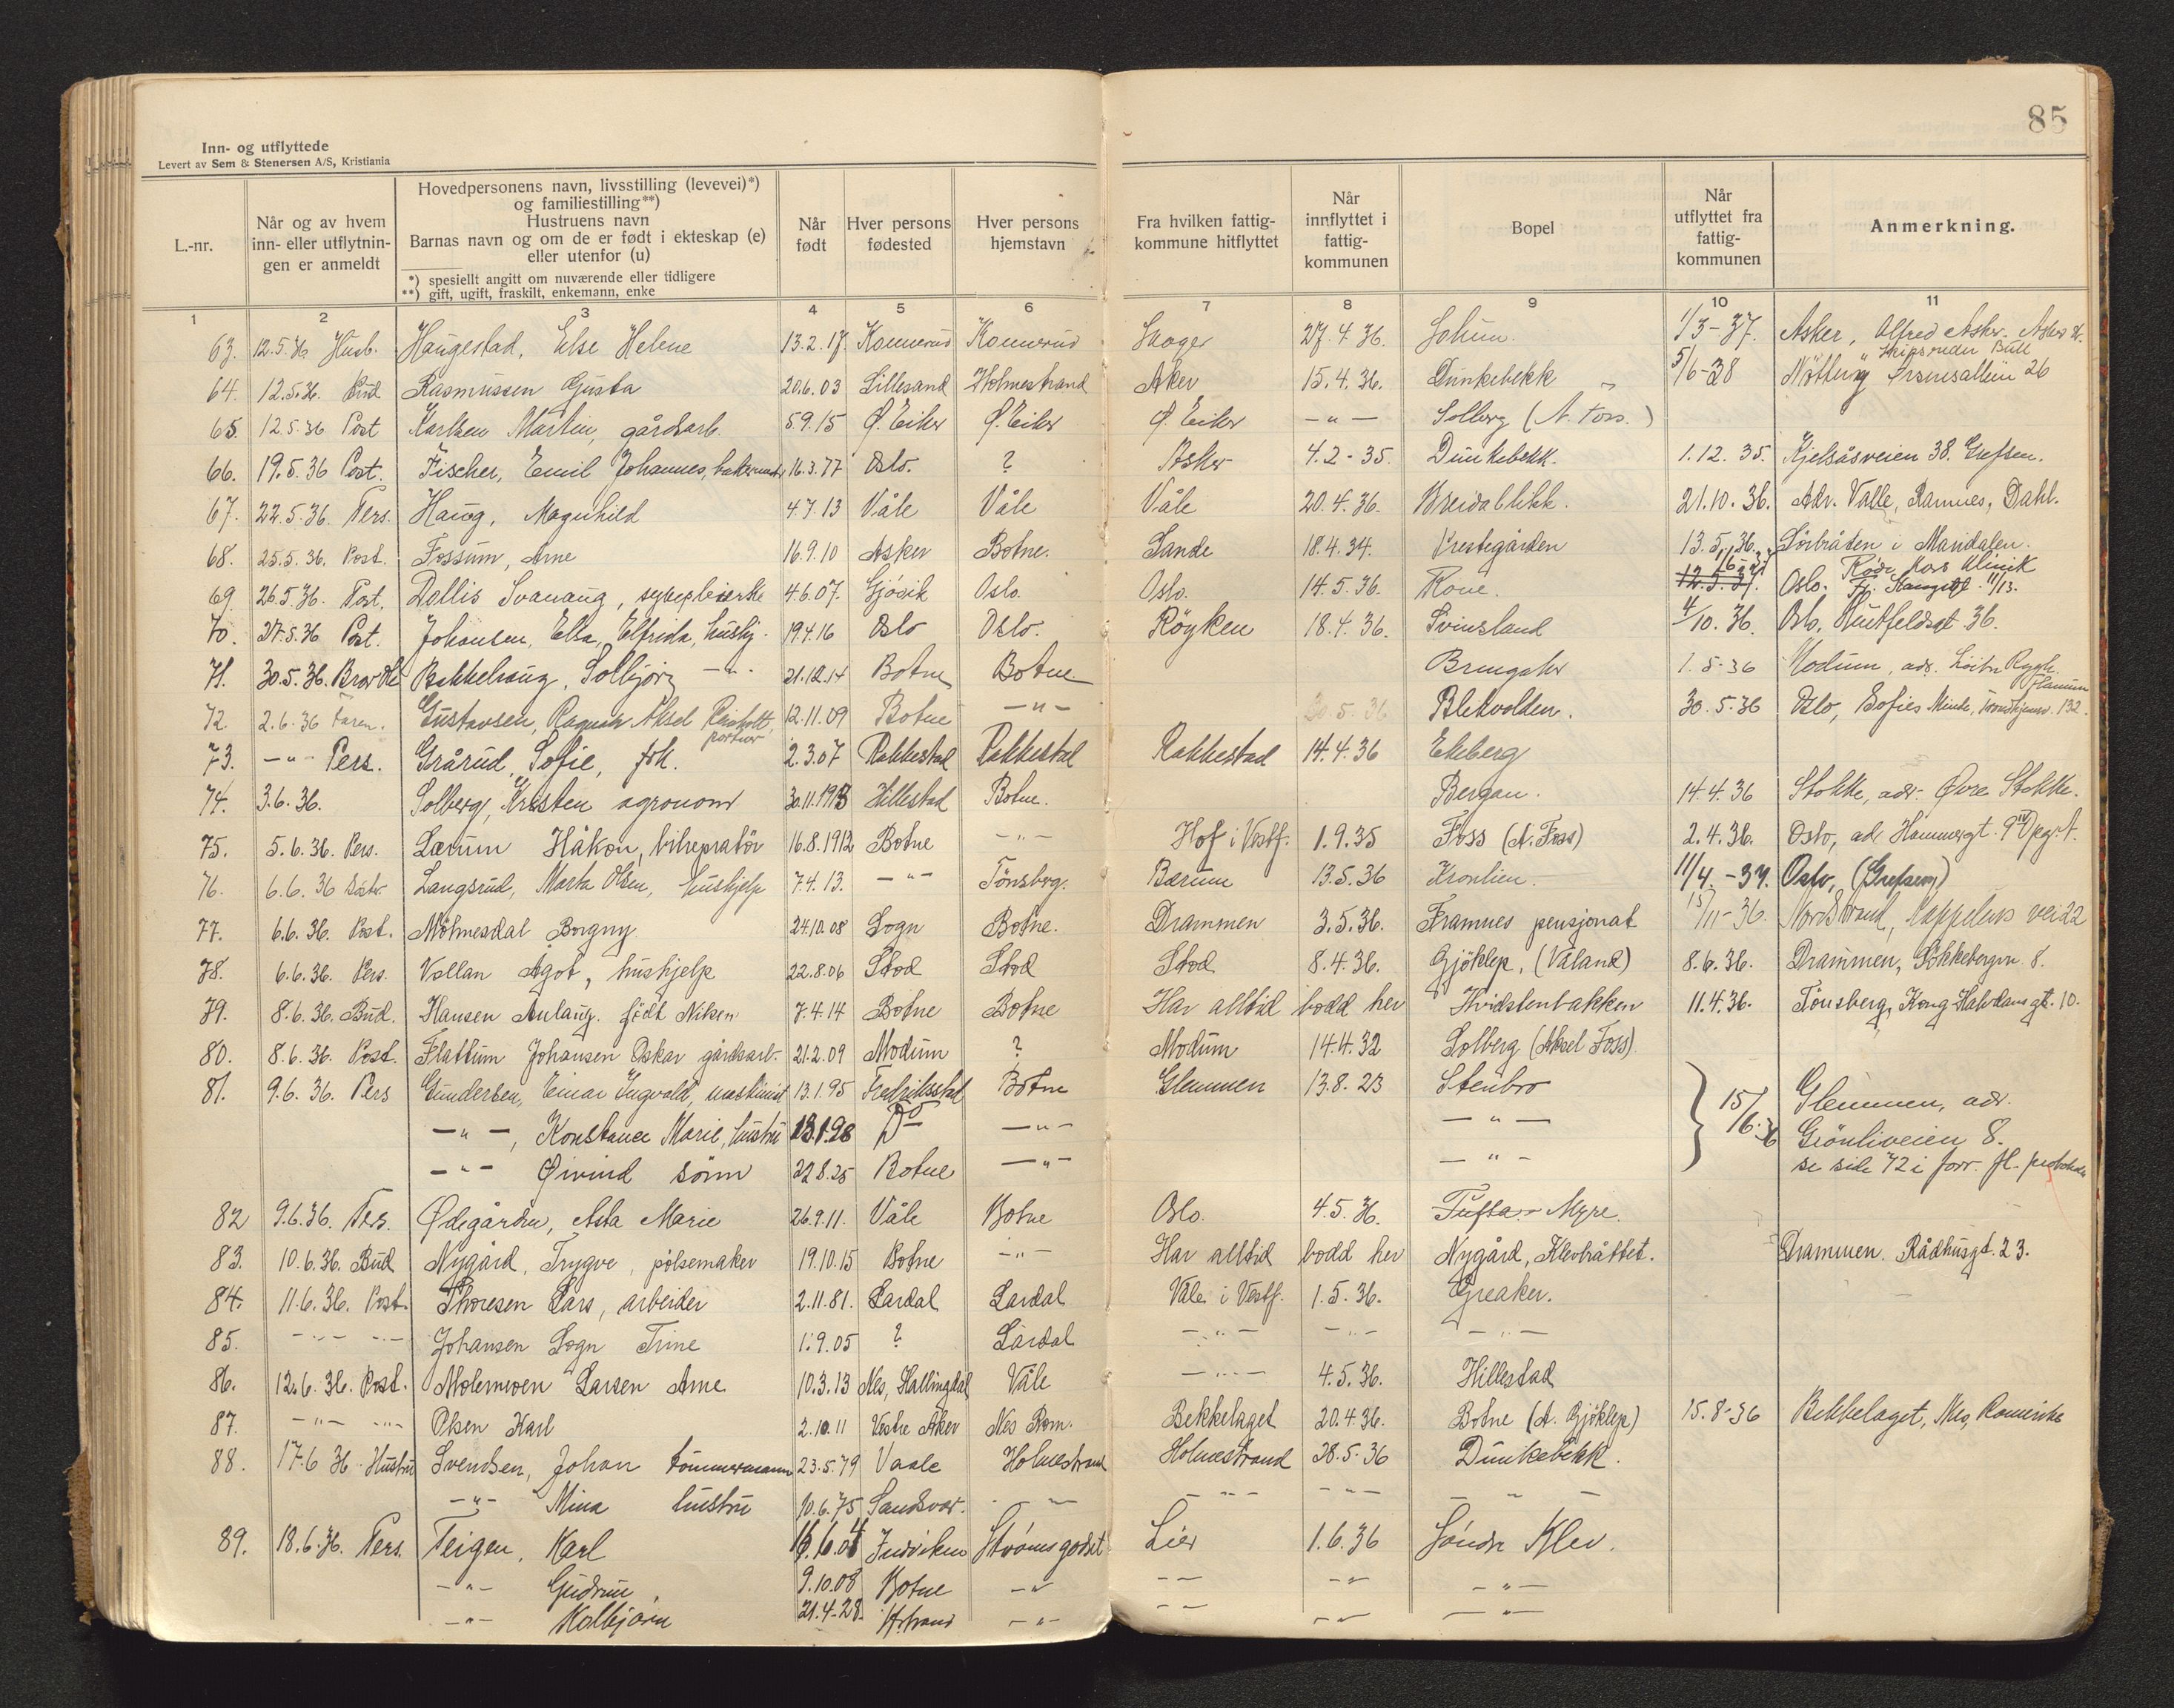 85
Inn- og utflyttede
Levert av Sem & Stenersen A/S, Kristiania
L.-nr.
Når og av hvem inn- eller utflytnin- gen er anmeldt
Hovedpersonens navn, livsstilling (levevei)*)
og familiestilling**)
Hustruens navn
Barnas navn og om de er født i ekteskap (e)
eller utenfor (u)
*) spesiellt angitt om nuværende eller tidligere
**) gift, ugift, fraskilt, enkemann, enke
Når født
Hver persons fødested
Hver persons hjemstavn
Fra hvilken fattig- kommune hitflyttet
Når innflyttet i fattig- kommunen
Bopel
Når utflyttet fra fattig- kommunen
Anmerkning.
1 2 3 4 5 6 7 8 9 10 11
63. 12.5.36 Husb. Haugestad, Else Helene 13.2.17. Konnerud Konnerud Skoger 27.4.36. Solum. 1/3-37. Asker, Alfred Asker. Asker st.
64. 12.5.36. Bud Rasmussen Gusta 20.6.03 Lillesand Holmestrand Aker 15.4.36. Dunkebekk 5/6-38 Nøtterøy 26
65. 12.5.36 Post Karlsen Martin, gårdsarb. 5.9.15 Ø. Eiker Ø. Eiker Ø. Eiker -"- Solberg (A. Foss.)
66. 19.5.36 Post. Fischer, Emil Johannes, 16.3.77 Oslo. ? Asker 4.2-35. Dunkebekk. 1.12.35. Kjelsåsveien 38. Grefsen.
67. 22.5.36. Pers. Haug, Magnhild 4.7.13 Våle Våle Våle 20.4.36. Breidablikk. 21.10.36. Adr. Valle, Ramnes, Dahl.
68. 25.5.36. Post. Fossum, Arne 16.9.10 Asker Botne. Sande 18.4.34. Prestegården 13.5.36. Sörbråten i Mandalen.
69 26.5.36. Post. Dollis Svanaug, sykepleierske 4.6.07. Gjövik Oslo. Oslo. 14.5.36. Rove. 12.5.37. Oslo. Röde Kors Klinik
70. 27.5.36 Post. Johansen, Elsa, Elfrida, hushj. 19.4.16 Oslo Oslo. Röyken 18.4.36. Svinsland 4/10.36. Oslo, Huitfeldsgt 36.
71. 30.5.36. Bakkehaug, Solbjørg -"- 21.12.14 Botne Botne Bringaker 1.5-36 Modum, adr.
72. 2.6.36 Faren. Gustavsen, Ragnar Aksel Reinholt, portier 12.11.09 Botne -"- 30.5.36 Blekvolden. 30.5-36 Oslo, Sofies Minde, Trondhjemsv. 132.
73. -"- Pers. Grårud, Sofie, frk. 2.3.07 Rakkestad Rakkestad Rakkestad 14.4.36 Ekeberg
74. 3.6.36. Solberg, Kristen agronom 30.11.1913 Hillestad Botne. Bergan. 14.4.36 Stokke, adr. Øvre Stokke.
75. 5.6.36. Pers. Lærum Håkon, bilrepratör 16.8.1912 Botne -"- Hof i Vestf. 1.9.35 Foss (A. Foss) 2.4.36. Oslo, ad. Hammergt. 9
76. 6.6.36 Langsrud, Marta Olsen, hushjelp 7.4.13. -"- Tönsberg. Bærum 13.5.36 Kronlien. 11/4.-37. Oslo, (Grefsen)
77. 6.6.36. Post. Mötmesdal Borgny 24.10.08 Sogn Botne. Drammen 3.5.36. Framnes pensjonat 15/11-36. Nordstrand, Kappelens vei 22
78. 6.6.36. Pers. Vollan Ågot, hushjelp 22.8.06 Stod Stod Stod 8.4.36. Gjöklep, (Våland) 8.6.36. Drammen, 8.
79. 8.6.36. Bud. Hansen Aulaug. født Nilsen 7.4.14 Botne Botne Har alltid bodd her Hvidstenbakken 11.4.36. Tönsberg, Kong Halvdans gt. 10.
80. 8.6.36. Post. Flattum Johansen Oskar gårdsarb. 21.2.09 Modum ? Modum 14.4.32 Solberg (Aksel Foss)
81. 9.6.36. Pers Gundersen, Einar Ingvald, maskinist 13.1.95 Fredriksstad Botne Glemmen 13.8.23 Stenbro 15/6.36 Glemmen, adr.
-"-, Konstance Marie, hustru 13.1.98 Do -"- -"- Grönliveien 8.
-"- Øivind sönn 22.8.25 Botne -"- -"- se side 72 i forr. fl. protokoll
82 9.6.36. Pers. Ødegården, Asta Marie 26.9.11. Våle Botne Oslo. 4.5.36. Tufta Myre.
83. 10.6.36. Bud Nygård, Trygve, pölsemaker 19.10.15 Botne -"- Har alltid bodd her Nygård, Klevbråttet. Drammen. Rådhusgt. 23.
84. 11.6.36. Post. Thoresen Lars, arbeider 2.11.81. Lardal Lardal Våle i Vestf. 1.5.36. Greaker.
85. -"- -"- Johansen Sogn Trine 1.9.05 ? Lardal -"- -"- -"-
86. 12.6.36. Post. Molemoen Larsen Arne 10.3.13 Nes, Hallingdal Våle -"- 4.5.36. Hillestad
87. -"- -"- Olsen Karl 2.10.11 Vestre Aker Nes Rom. Bekkelaget 20.4.36. Botne (A. Gjöklep) 15.8-36 Bekkelaget, Nes, Romerike
88. 17.6 36. Hustru Svendsen, Johan tömmermann 23.5.79 Vaale Holmestrand Holmestrand 28.5-36 Dunkebekk.
-"- Mina hustru 10.6.75 Sandsvær. -"- -"- -"- -"-
89. 18.6.36. Pers. Teigen, Karl 16.6.04 Indviken Strömsgodset Lier 1.6.36 Söndre Klev.
-"- Gudrun, 9.10.08 Botne -"- -"- -"- -"-
-"- Kolbjörn 21.4-28. H.strand -"- -"- -"- -"-